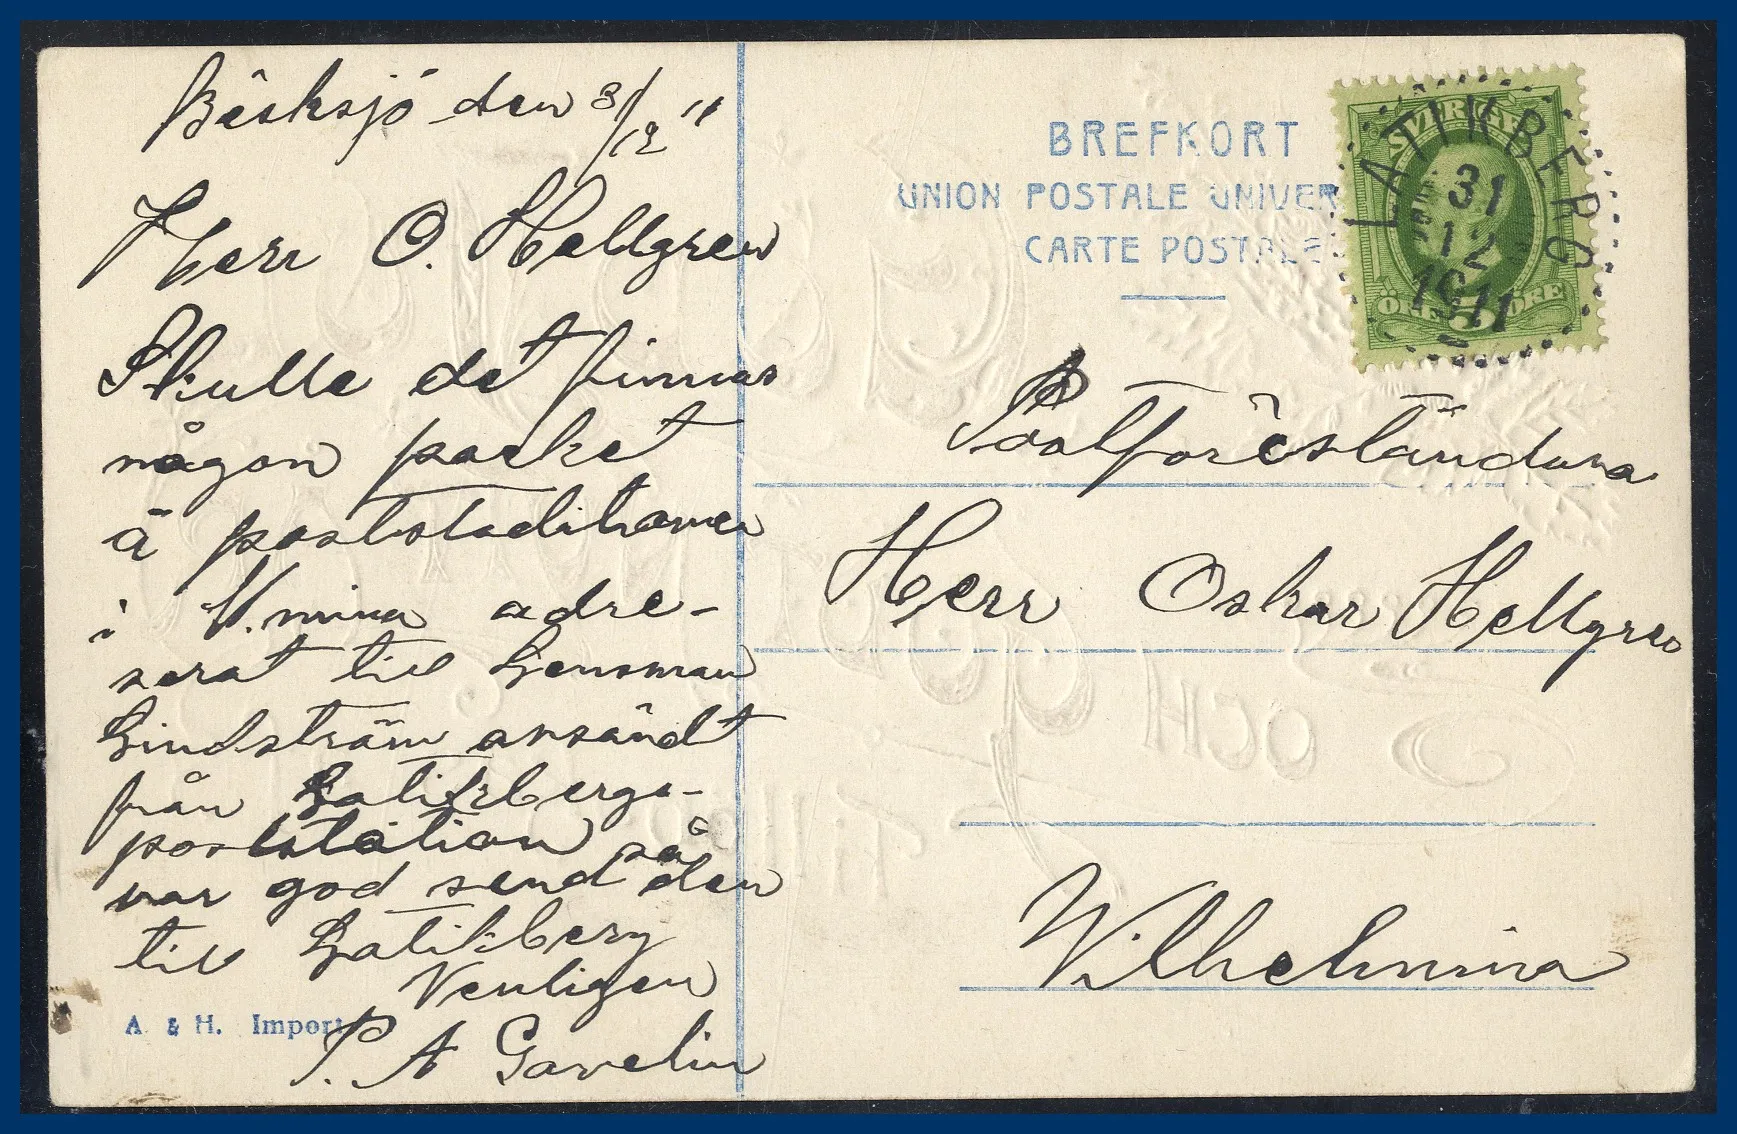 Bäsksjö den 31/12 11
Herr O. Hellgren
Skulle det finnas
någon packet
å poststaditionen
i V.mina adre-
serat till Lensman
Lindström avsändt
från Latikbergs-
poststation så
var god send den
till Latikberg
Venligen
P. A Gavelin
A & H. Import
BREFKORT
UNION POSTALE UNIVER
CARTE POSTALE
SVERIGE
ÖRE 5 ÖRE
LATIKBERG
31
12
1911
Postföreståndara
Herr Oskar Hellgren
Wilhelmina
OCH